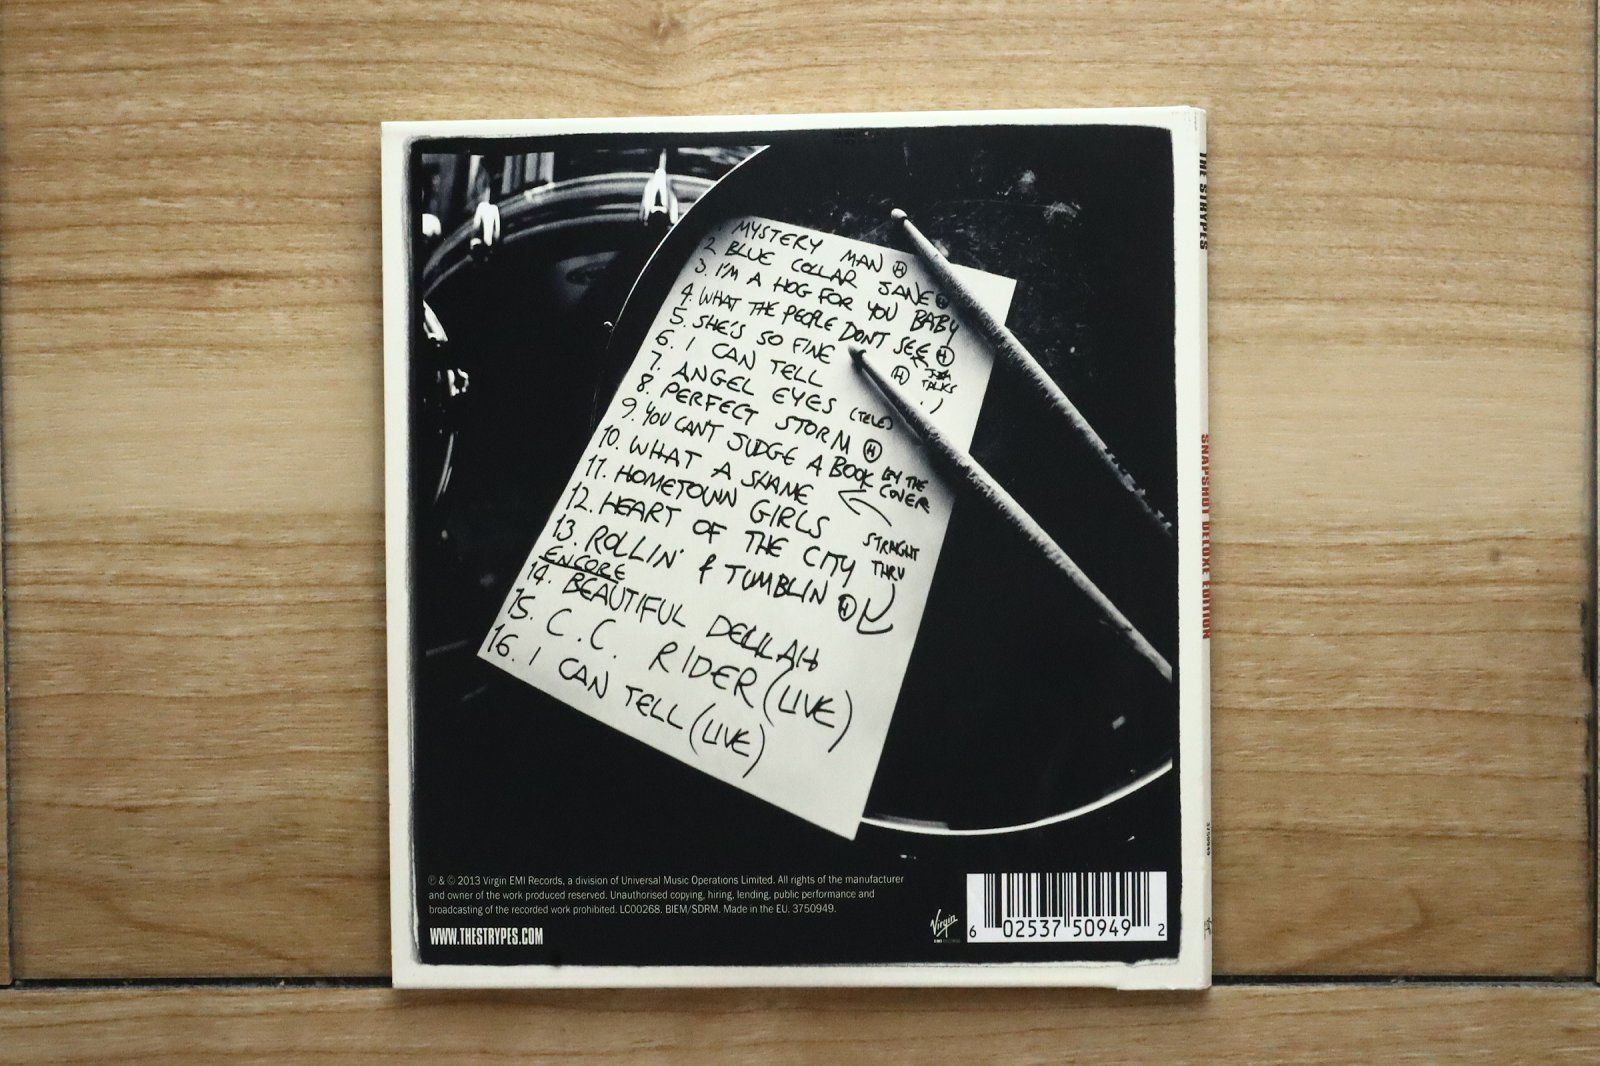 1. MYSTERY MAN H
2. BLUE COLLAR JANE H
3. I'M A HOG FOR YOU BABY
4. WHAT THE PEOPLE DON'T SEE H
5. SHE'S SO FINE H
TALKS
6. I CAN TELL
7. ANGEL EYES (TELE)
8. PERFECT STORM H
9. YOU CAN'T JUDGE A BOOK BY THE COVER
10. WHAT A SHAME
STRAIGHT THRU
11. HOMETOWN GIRLS
12. HEART OF THE CITY
13. ROLLIN' & TUMBLIN H
ENCORE
14. BEAUTIFUL DELILAH
15. C.C. RIDER (LIVE)
16. I CAN TELL (LIVE)
℗ & © 2013 Virgin EMI Records, a division of Universal Music Operations Limited. All rights of the manufacturer
and owner of the work produced reserved. Unauthorised copying, hiring, lending, public performance and
broadcasting of the recorded work prohibited. LC00268. BIEM/SDRM. Made in the EU. 3750949.
WWW.THESTRYPES.COM
Virgin
6 02537 50949 2
THE STRYPES
SNAPSHOT DELUXE EDITION
3750949